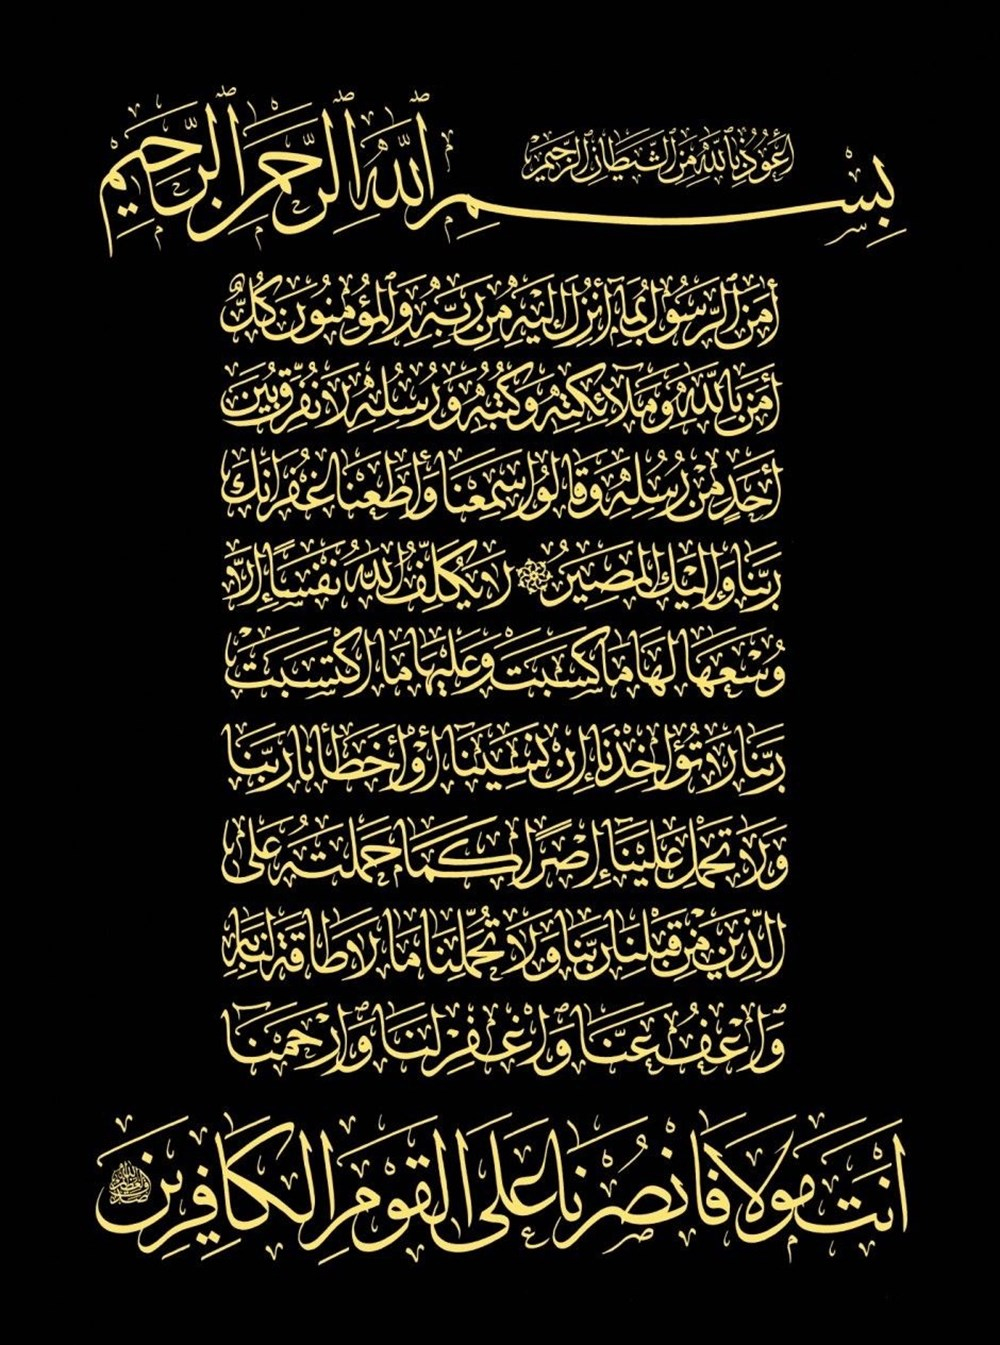 أعوذ بالله من الشيطان الرجيم
بسم الله الرحمن الرحيم
أمن الرسول بما أنزل إليه من ربه والمؤمنون كل
أمن بالله وملائكته وكتبه ورسله لا نفرق بين
أحد من رسله وقالوا سمعنا وأطعنا غفرانك
ربنا وإليك المصير لا يكلف الله نفسا إلا
وسعها لها ما كسبت وعليها ما اكتسبت
ربنا لا تؤاخذنا إن نسينا أو أخطأنا ربنا
ولا تحمل علينا إصرا كما حملته على
الذين من قبلنا ربنا ولا تحملنا ما لا طاقة لنا به
واعف عنا واغفر لنا وارحمنا
أنت مولانا فانصرنا على القوم الكافرين
صدق الله العظيم